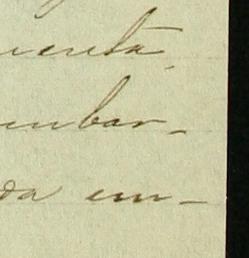 uenta,
mbar-
da em-